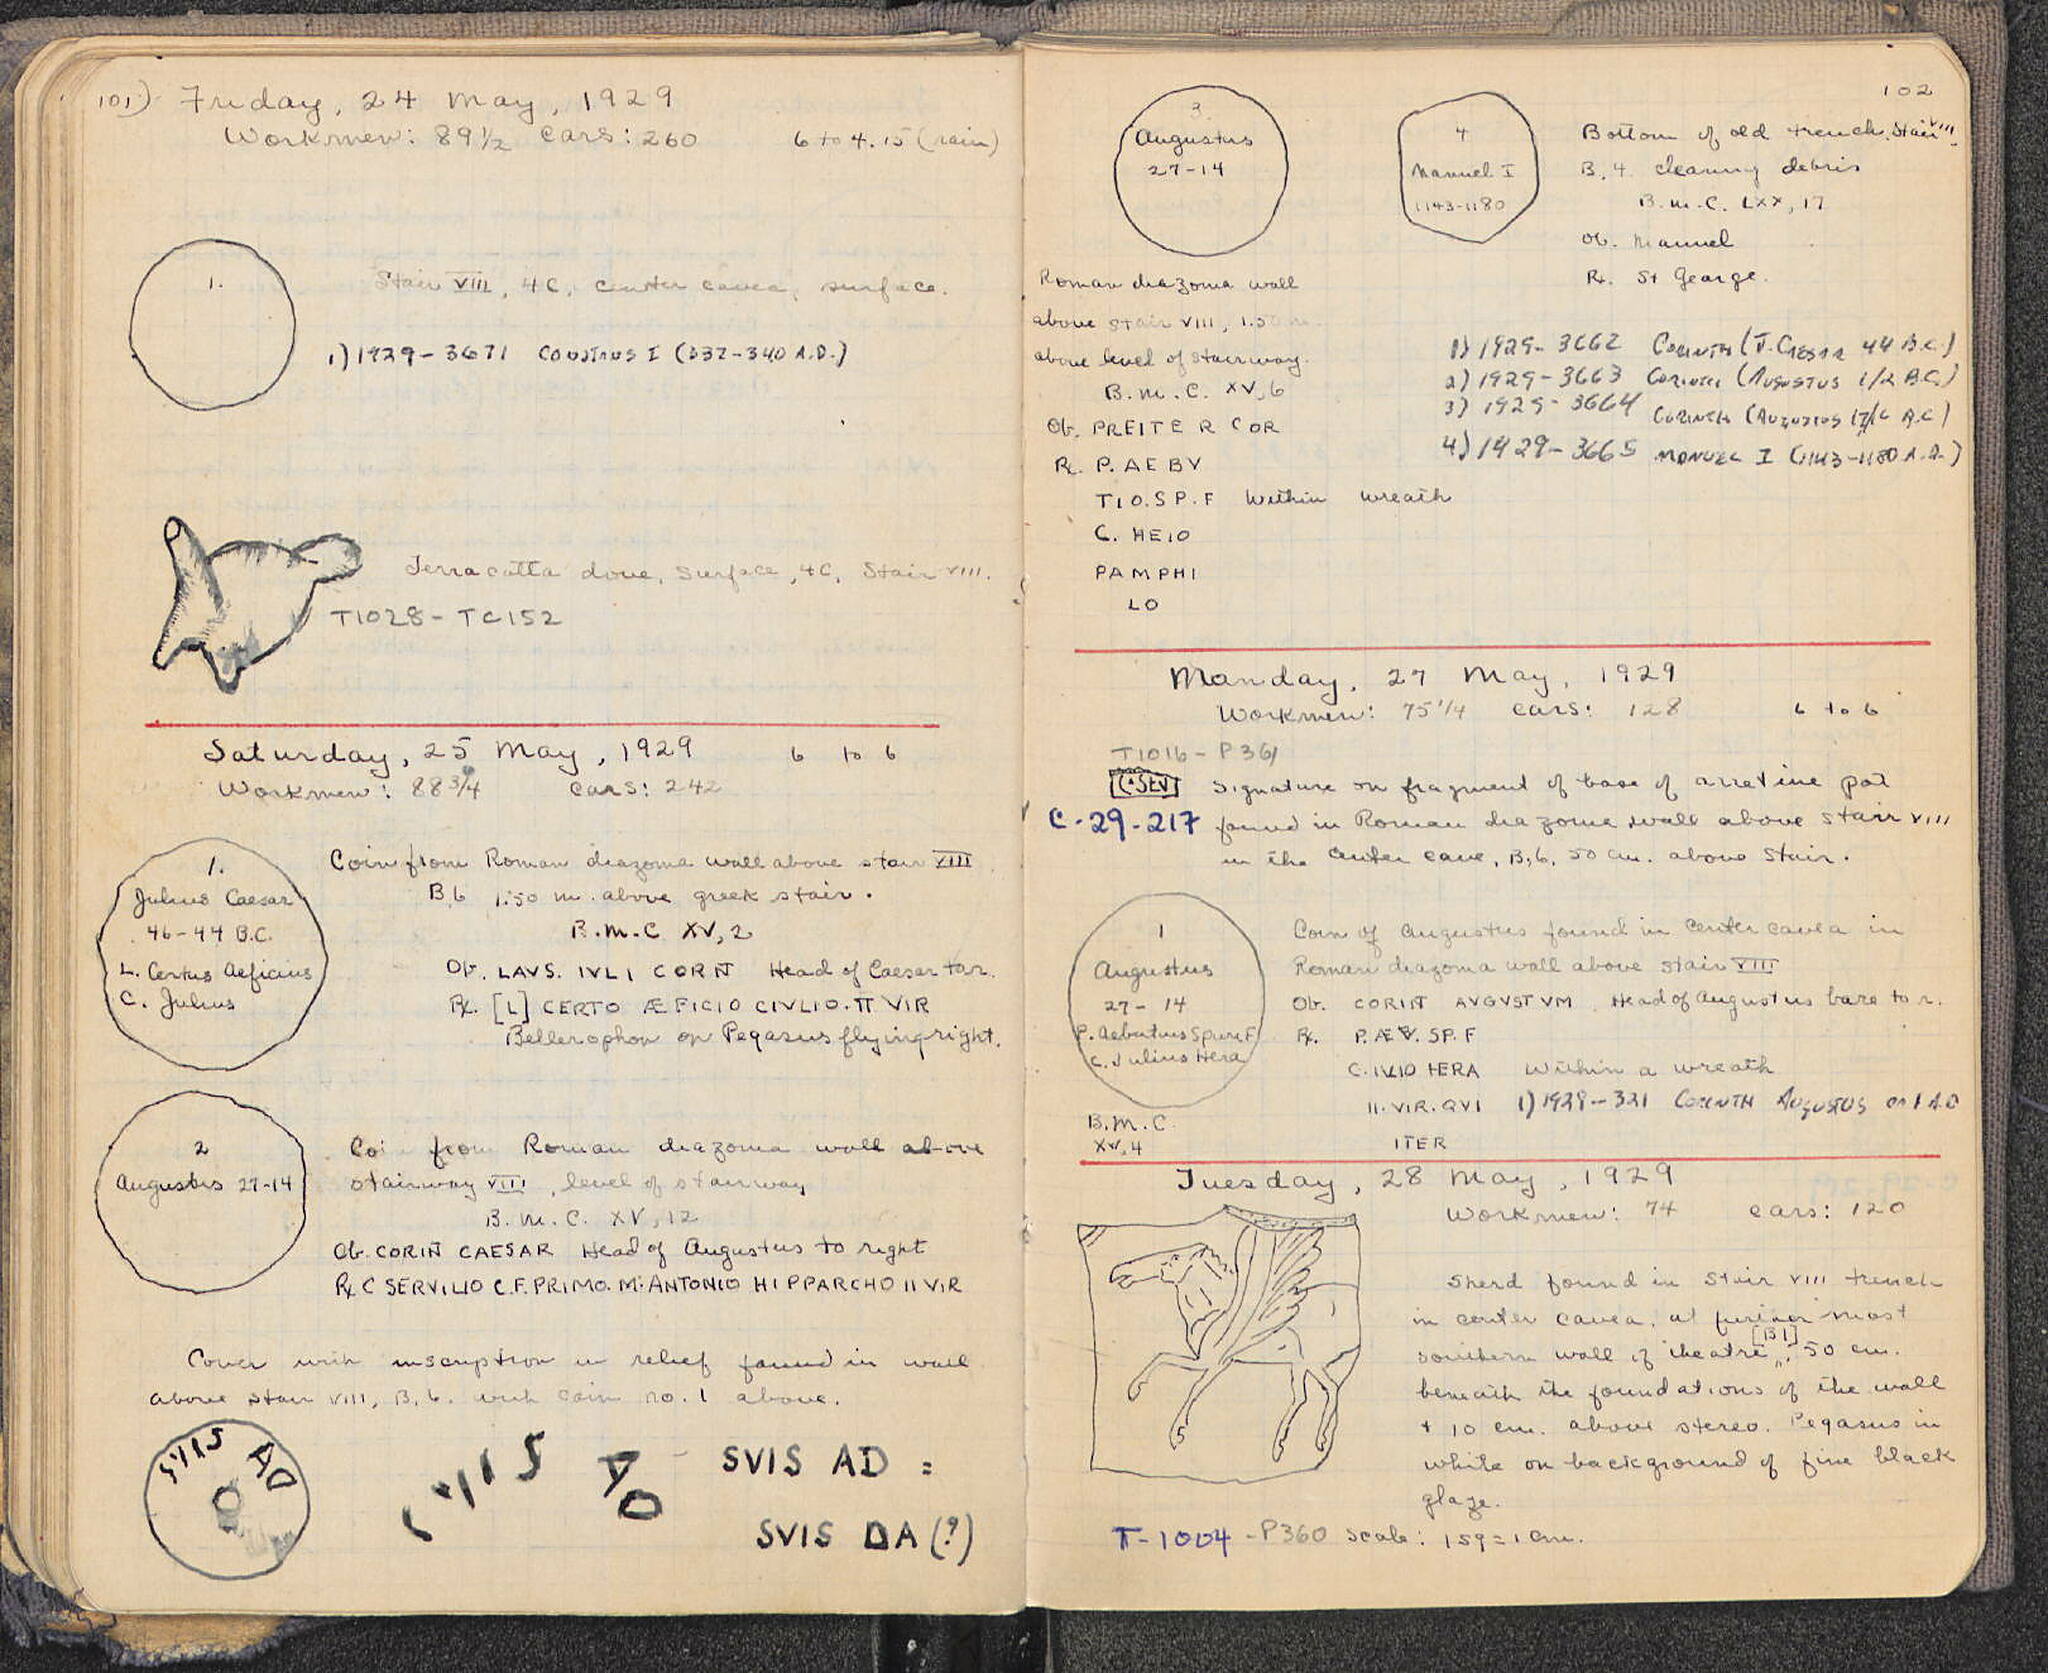 101) Friday, 24 May, 1929
Workmen: 89 1/2 Cars: 260 6 to 4.15 (rain)
1.
Stair VIII, 4C, center cavea, surface.
1) 1929-3671 CONSTANS I (337-340 A.D.)
Terracotta dove, surface, 4C, Stair VIII.
T1028 - TC152
Saturday, 25 May, 1929 6 to 6
Workmen: 88 3/4 Cars: 242
1.
Julius Caesar
46-44 B.C.
L. Certus Aeficius
C. Julius
Coin from Roman diazoma wall above stair VIII
B,6 1.50 m. above greek stair.
B.M.C XV, 2
Ob. LAVS. IVLI CORIN Head of Caesar to r.
Rx. [L] CERTO ÆFICIO CIVLIO. II VIR
Bellerophon on Pegasus flying right.
2
Augustus 27-14
Coin from Roman diazoma wall above
stairway VIII, level of stairway
B.M.C. XV, 12
Ob. CORIN CAESAR Head of Augustus to right
Rx C SERVILIO C.F. PRIMO. M. ANTONIO HIPPARCHO II VIR
Cover with inscription in relief found in wall
above stair VIII, B,6. with coin no. 1 above.
SVIS AD
SVIS AD =
SVIS DA (?)
102
3
Augustus
27-14
Roman diazoma wall
above stair VIII, 1.50 m.
above level of stairway.
B.M.C. XV, 6
Ob. PREITE R COR
Rx. P. AEBV
TIO. SP. F Within wreath
C. HEIO
PAMPHI
LO
4
Manuel I
1143-1180
Bottom of old trench, Stair VIII.
B,4 clearing debris
B.M.C. LXX, 17
Ob. Manuel
Rx. St George.
1) 1929-3662 CORINTH (J. CAESAR 44 B.C.)
2) 1929-3663 CORINTH (AUGUSTUS 1/2 B.C.)
3) 1929-3664 CORINTH (AUGUSTUS
4) 1929-3665 MANUEL I (1143-1180 A.D.)
Monday, 27 May, 1929
Workmen: 75 1/4 Cars: 128 6 to 6
T1016 - P361
C·SEV Signature on fragment of base of arretine pot
C-29-217 found in Roman diazoma wall above stair VIII
in the center cave, B,6, 50 cm. above Stair.
1
Augustus
27-14
P. Aebutius Spuri F
C. Julius Hera
B.M.C.
XV, 4
Coin of Augustus found in center cavea in
Roman diazoma wall above stair VIII
Ob. CORINT AVGVSTVM Head of Augustus bare to r.
Rx. P. ÆBV. SP. F
C. IVLIO HERA Within a wreath
II. VIR. QVI 1) 1929-321 CORINTH AUGUSTUS on 1 A.D
ITER
Tuesday, 28 May, 1929
Workmen: 74 Cars: 120
Sherd found in Stair VIII trench
in center cavea, at further most
southern wall of theatre [B1], 50 cm.
beneath the foundations of the wall
+ 10 cm. above stereo. Pegasus in
white on background of fine black
glaze.
T-1004 - P360 Scale: 1 sq = 1 cm.